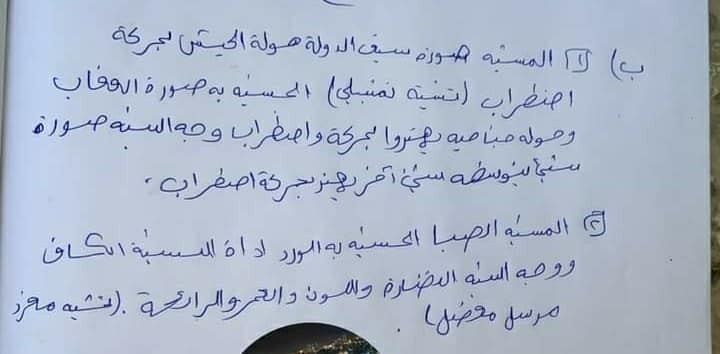 ب) ١) المشبه صورة سيف الدولة حوله الجيش بحركة
اضطراب (تشبيه تمثيلي) المشبه به صورة العقاب
وحوله جناحيه يهتزوا بحركة واضطراب وجه الشبه صورة
شيء يتوسطه شيء آخر يهتز بحركة اضطراب .
٢) المشبه الصبا المشبه به الورد اداة التشبيه الكاف
ووجه الشبه النضارة واللون والعمر والرائحة . (تشبيه مفرد
مرسل مفصل) .